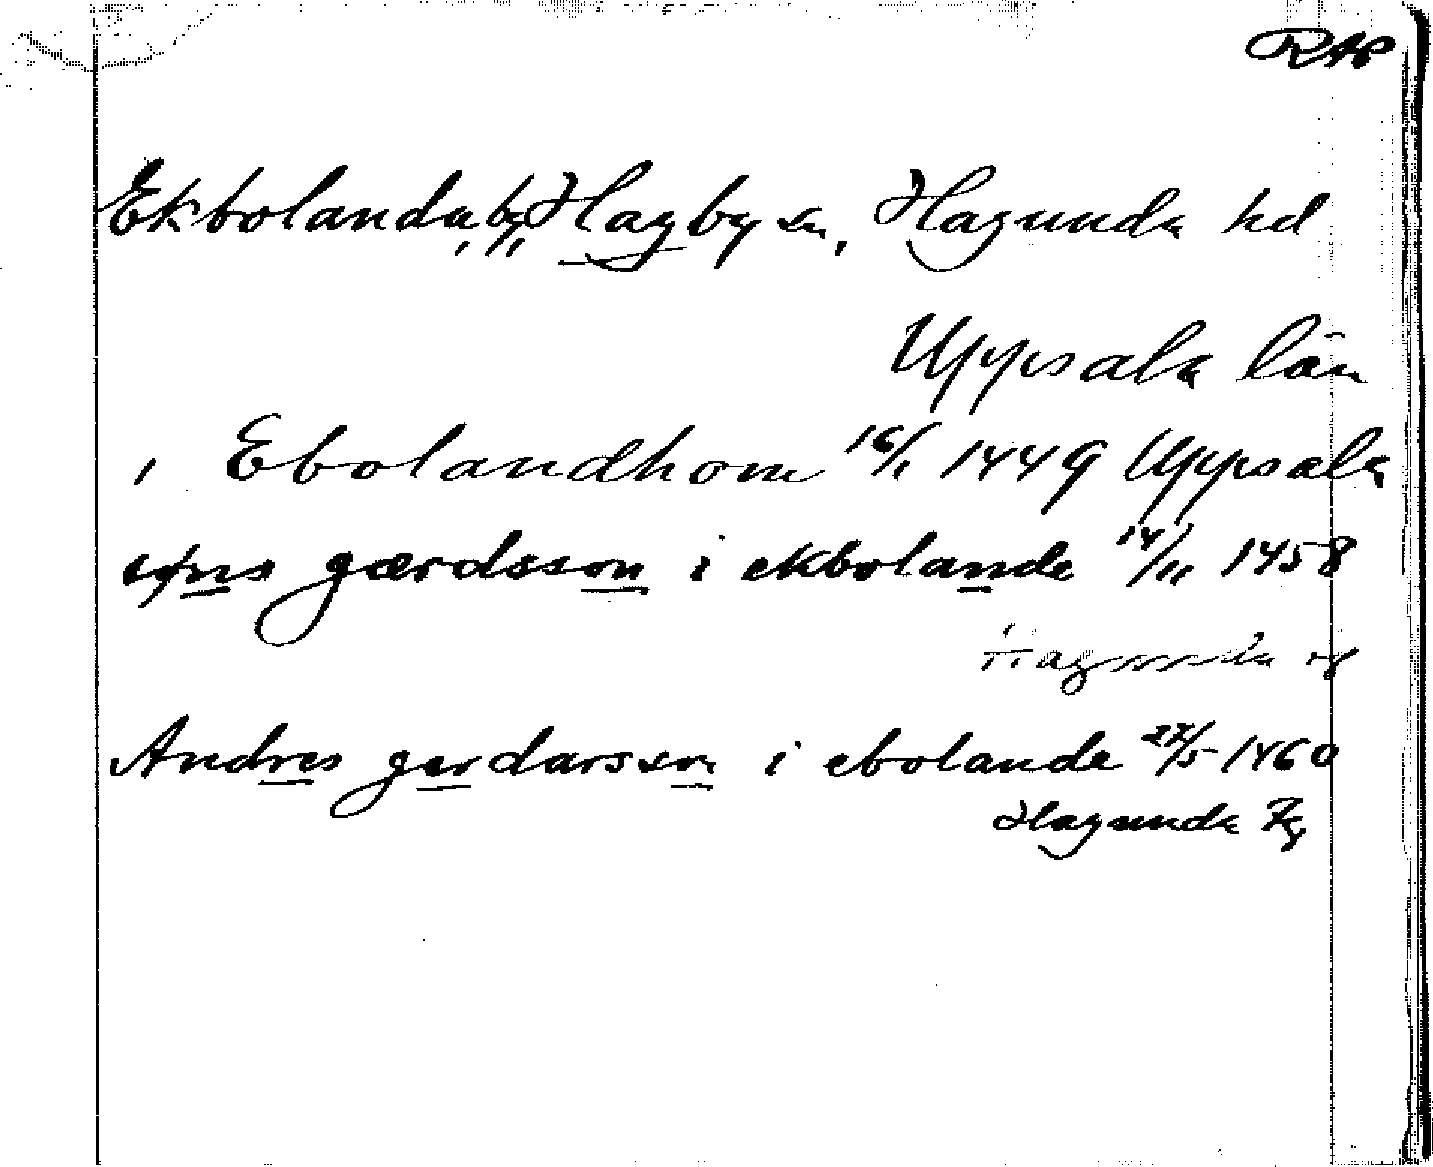 RAP
Ekbolanda, by, Hagby sn, Hagunda hd
Uppsala län
i Ebolandhom 16/1 1449 Uppsala
gærdsson i ekbolande 14/11 1458
Hagunda
Andres gerdarsson i ebolande 27/5 1460
Hagunda